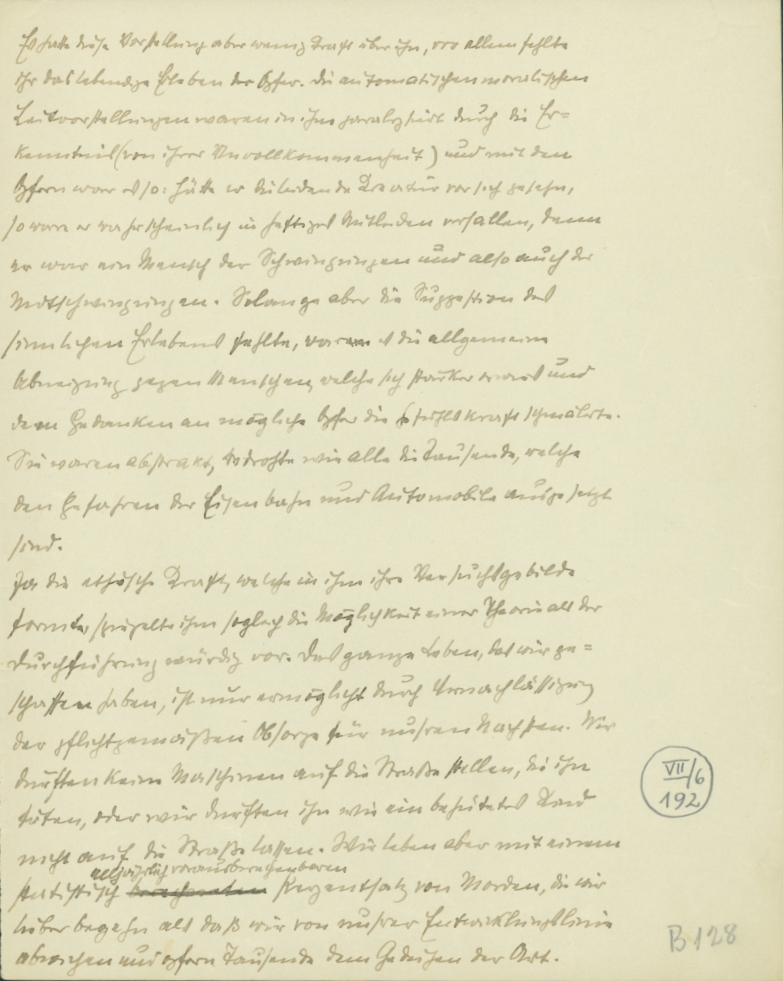 Es hatte diese Vorstellung aber wenig Kraft über ihn, vor allem fehlte
ihr das lebendige Erleben der Opfer. Die automatischen moralischen
Leitvorstellungen waren in ihm paralysiert durch die Er=
kenntnis (von ihrer Unvollkommenheit) und mit den
Opfern war es so: hätte er die leidende Kreatur vor sich gesehn,
so wäre er wahrscheinlich in heftiges Mitleiden verfallen, denn
er war ein Mensch der Schwingungen und also auch der
Mitschwingungen. Solange aber die Suggestion des
sinnlichen Erlebens fehlte, war es die allgemeine
Abneigung gegen Menschen, welche sich stärker erwies und
dem Gedanken an mögliche Opfer die Gefühlskraft schmälerte.
Sie waren abstrakt, bedrohte wie alle die Tausende, welche
den Gefahren der Eisenbahn und Automobile ausgesetzt
sind.
Ja die ethische Kraft, welche in ihm ihre Versuchsgebilde
formte, spiegelte ihm sogleich die Möglichkeit einer Theorie als der
Durchführung würdig vor. Das ganze Leben, das wir ge=
schaffen haben, ist nur ermöglicht durch Vernachlässigung
der pflichtgemäßen Obsorge für unsren Nächsten. Wir
dürften keine Maschinen auf die Straße stellen, die ihn
töten, oder wir dürften ihn wie ein behütetes Kind
nicht auf die Straße lassen. Wir leben aber mit einem
alljährlich vorausberechenbaren
statistisch Perzentsatz von Morden, die wir
lieber begehn als daß wir von unsrer Entwicklungslinie
abweichen und opfern Tausende dem Gedeihen der Art.
VII/6
192
B 128